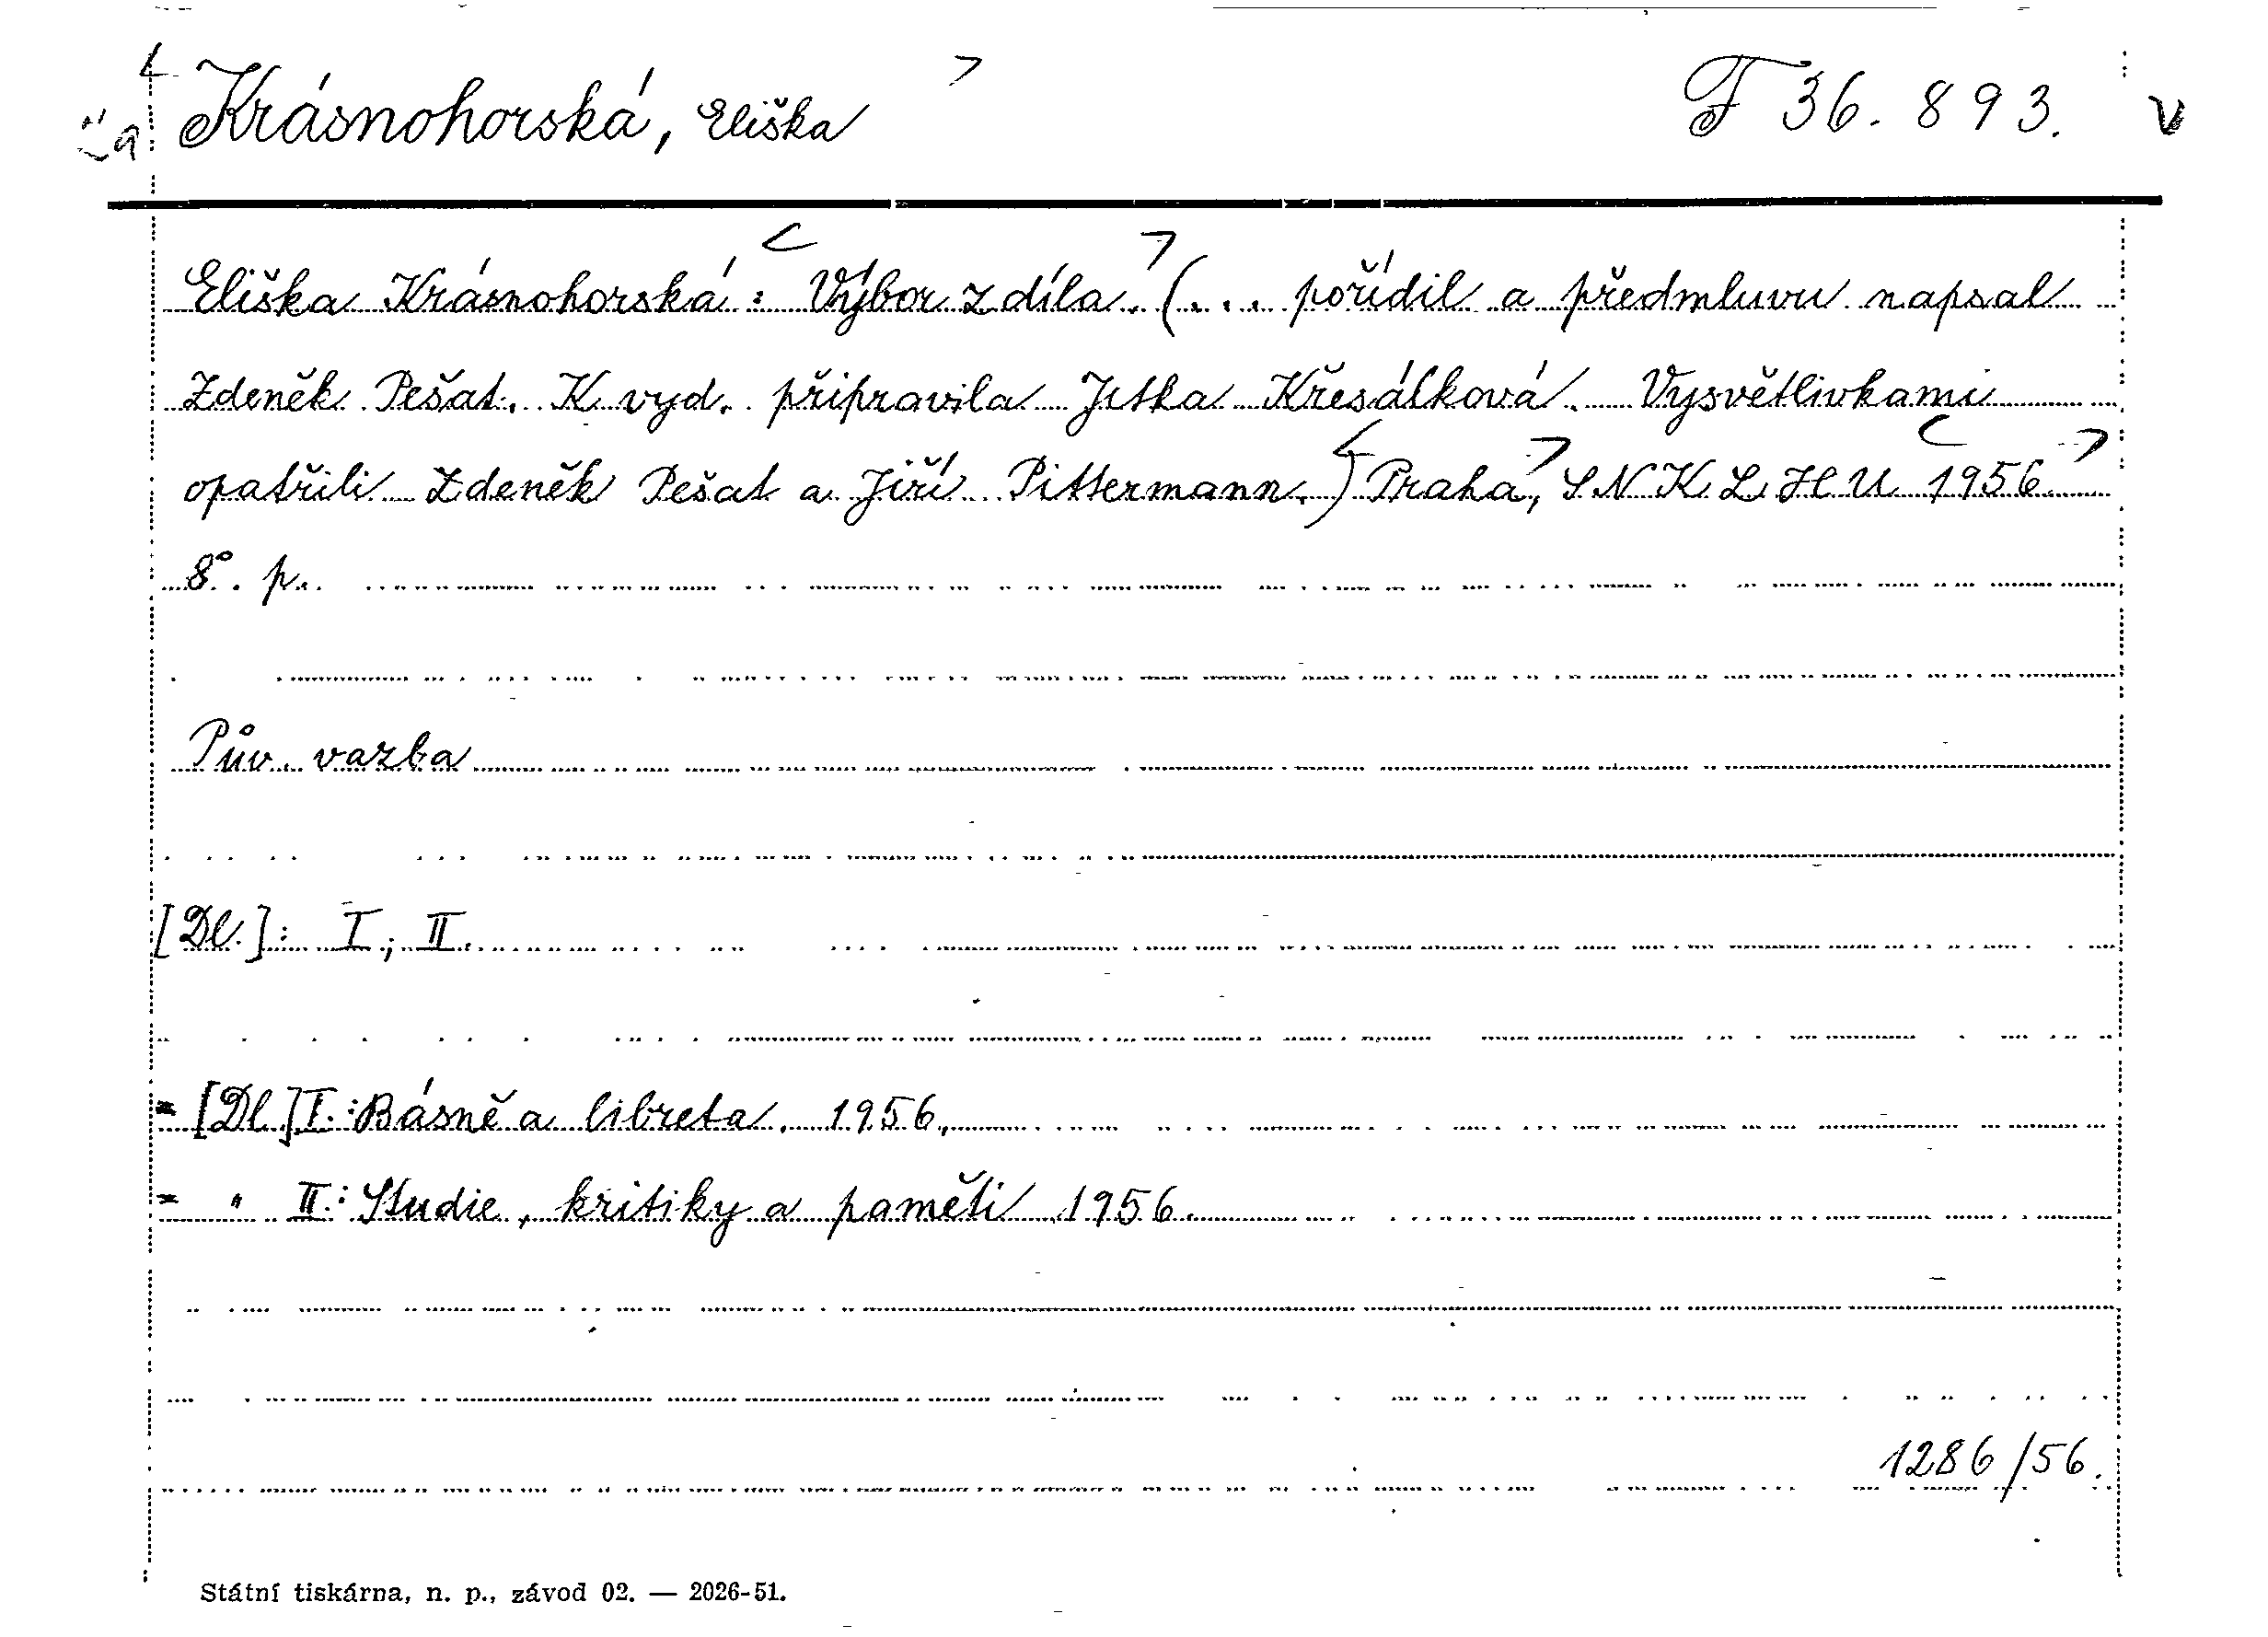 Krásnohorská, Eliška F 36.893. v
Eliška Krásnohorská: Výbor z díla. (... pořídil a předmluvu napsal
Zdeněk Pešat. K vyd. připravila Jitka Křesálková. Vysvětlivkami
opatřili Zdeněk Pešat a Jiří Pittermann.) Praha, SNKLHU 1956.
8°. p.
Pův. vazba
[Dl.]: I, II.
= [Dl.] I.: Básně a libreta. 1956.
= " II.: Studie, kritiky a paměti 1956.
1286/56.
Státní tiskárna, n. p., závod 02. — 2026-51.